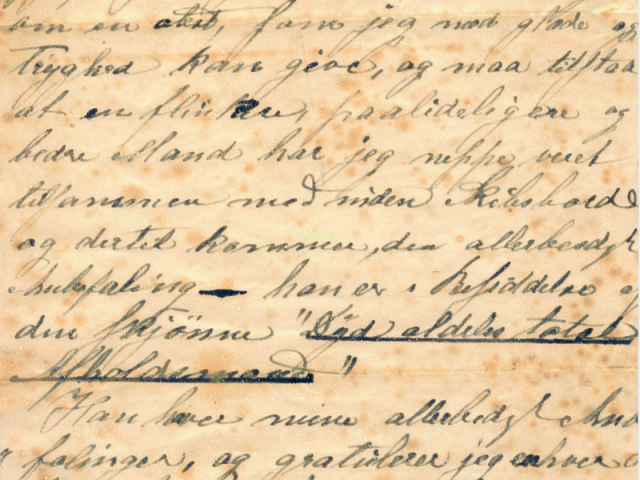 om en attest, som jeg med glæde og
Tryghed kan give, og maa tilstaa
at en flinkere, paalideligere og
bedre Mand har jeg neppe været
tilsammen med inden Skibsborde
og dertil kommer, den allerbedste
Anbefaling — han er i Besiddelse a
den skjönne "Dyd aldeles total
Afholdsmand"
Han haver mine allerbedste Anb
falinger, og gratulerer jeg enhver